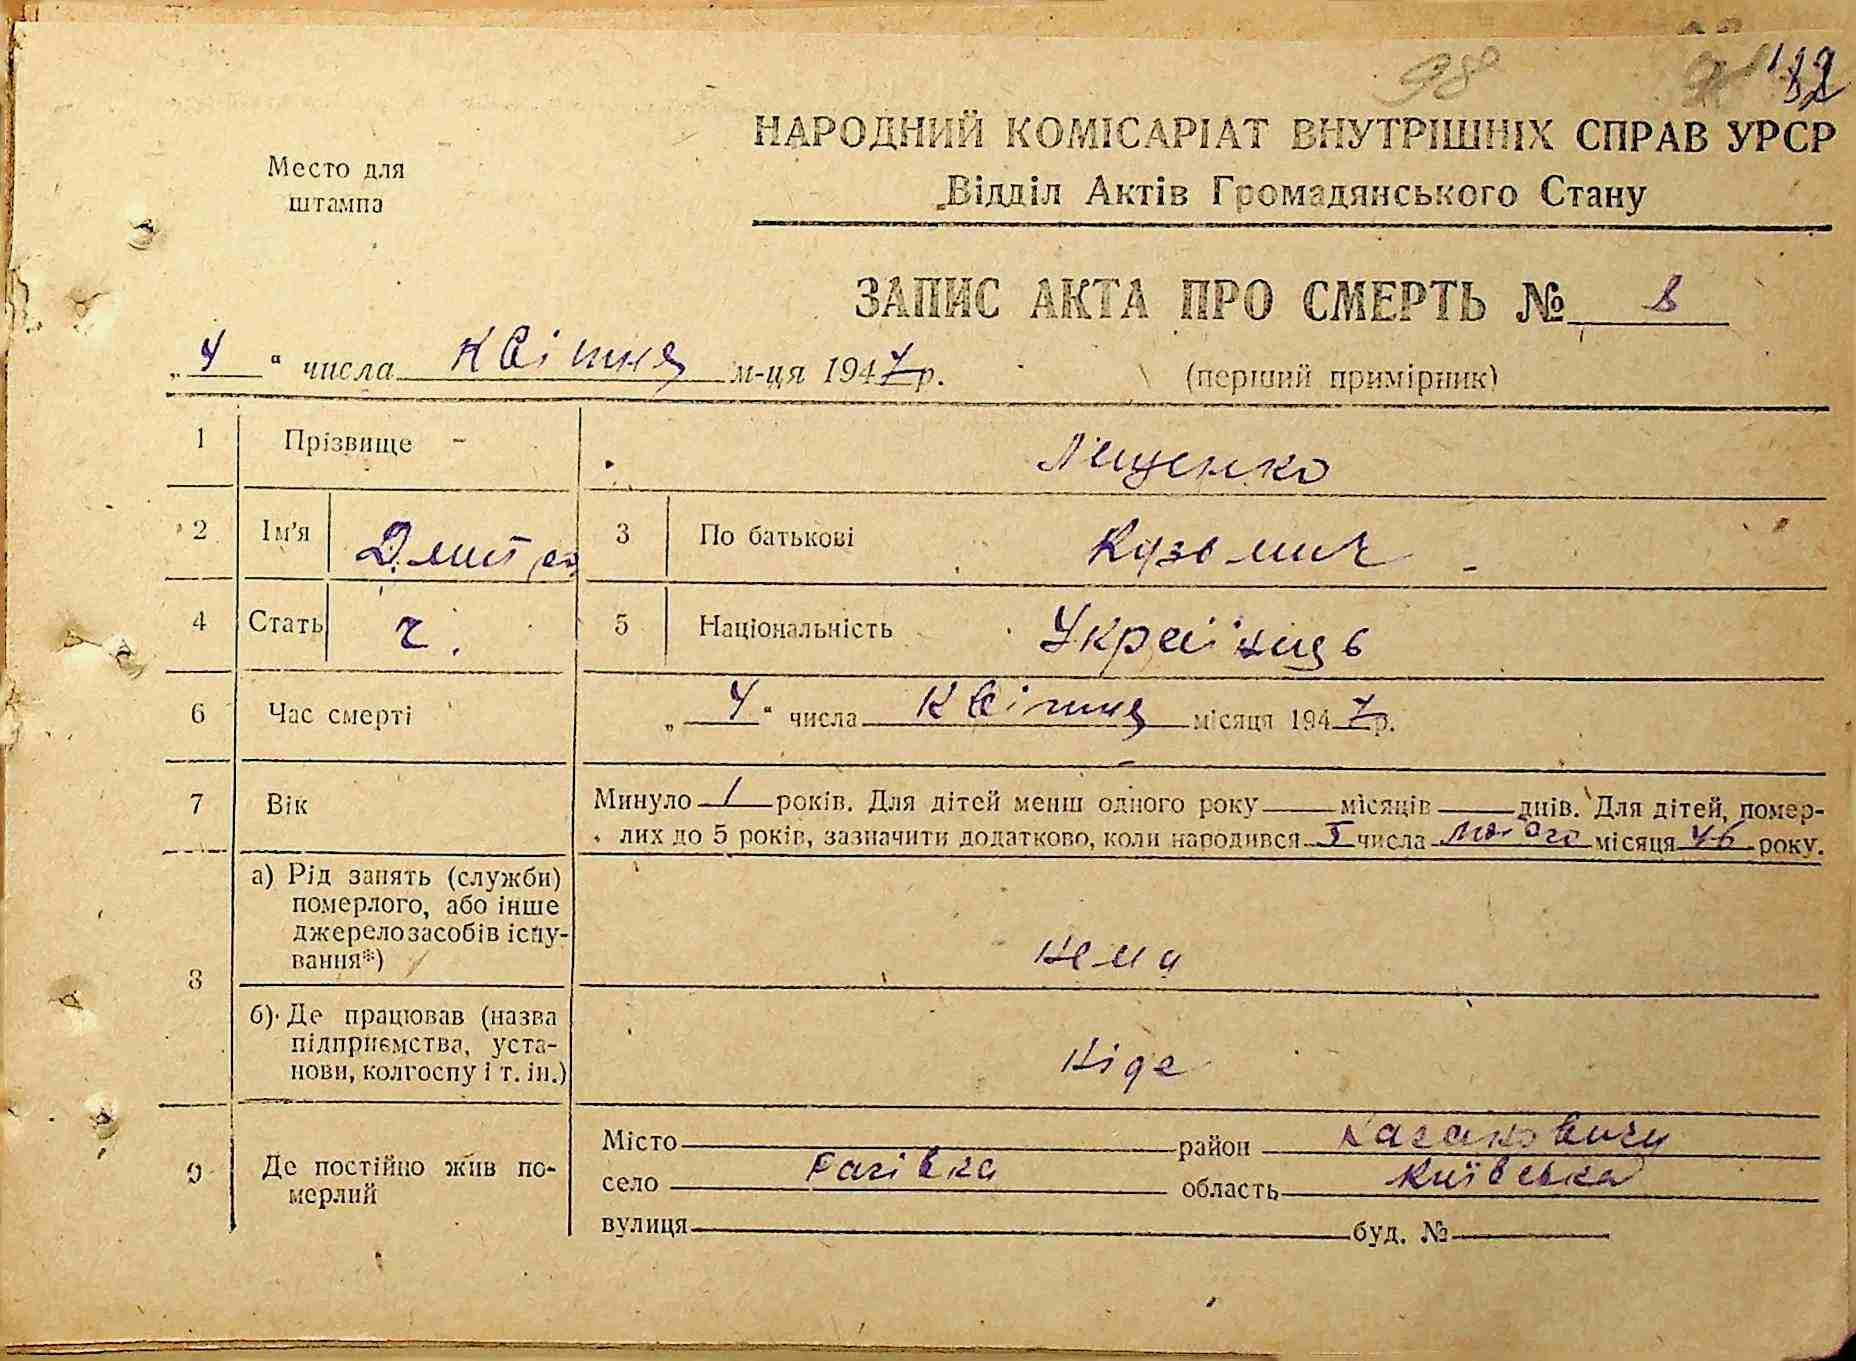 98
НАРОДНИЙ КОМІСАРІАТ ВНУТРІШНІХ СПРАВ УРСР
Место для штампа
Відділ Актів Громадянського Стану
ЗАПИС АКТА ПРО СМЕРТЬ № 8
„ 4 “ числа квітня м-ця 1947 р. (перший примірник)
1 Прізвище Ліщенко
2 Ім'я Дмитро 3 По батькові Кузьмич
4 Стать ч. 5 Національність Українець
6 Час смерті „ 4 “ числа квітня місяця 1947 р.
7 Вік Минуло 1 років. Для дітей менш одного року місяців днів. Для дітей, помер-
лих до 5 років, зазначити додатково, коли народився числа місяця 46 року.
8 а) Рід занять (служби)
померлого, або інше
джерело засобів існу-
вання*) нема
б) Де працював (назва
підприємства, уста-
нови, колгоспу і т. ін.) ніде
9 Де постійно жив по-
мерлий
Місто район Кагановичи
село Рагівка область Київська
вулиця буд. №